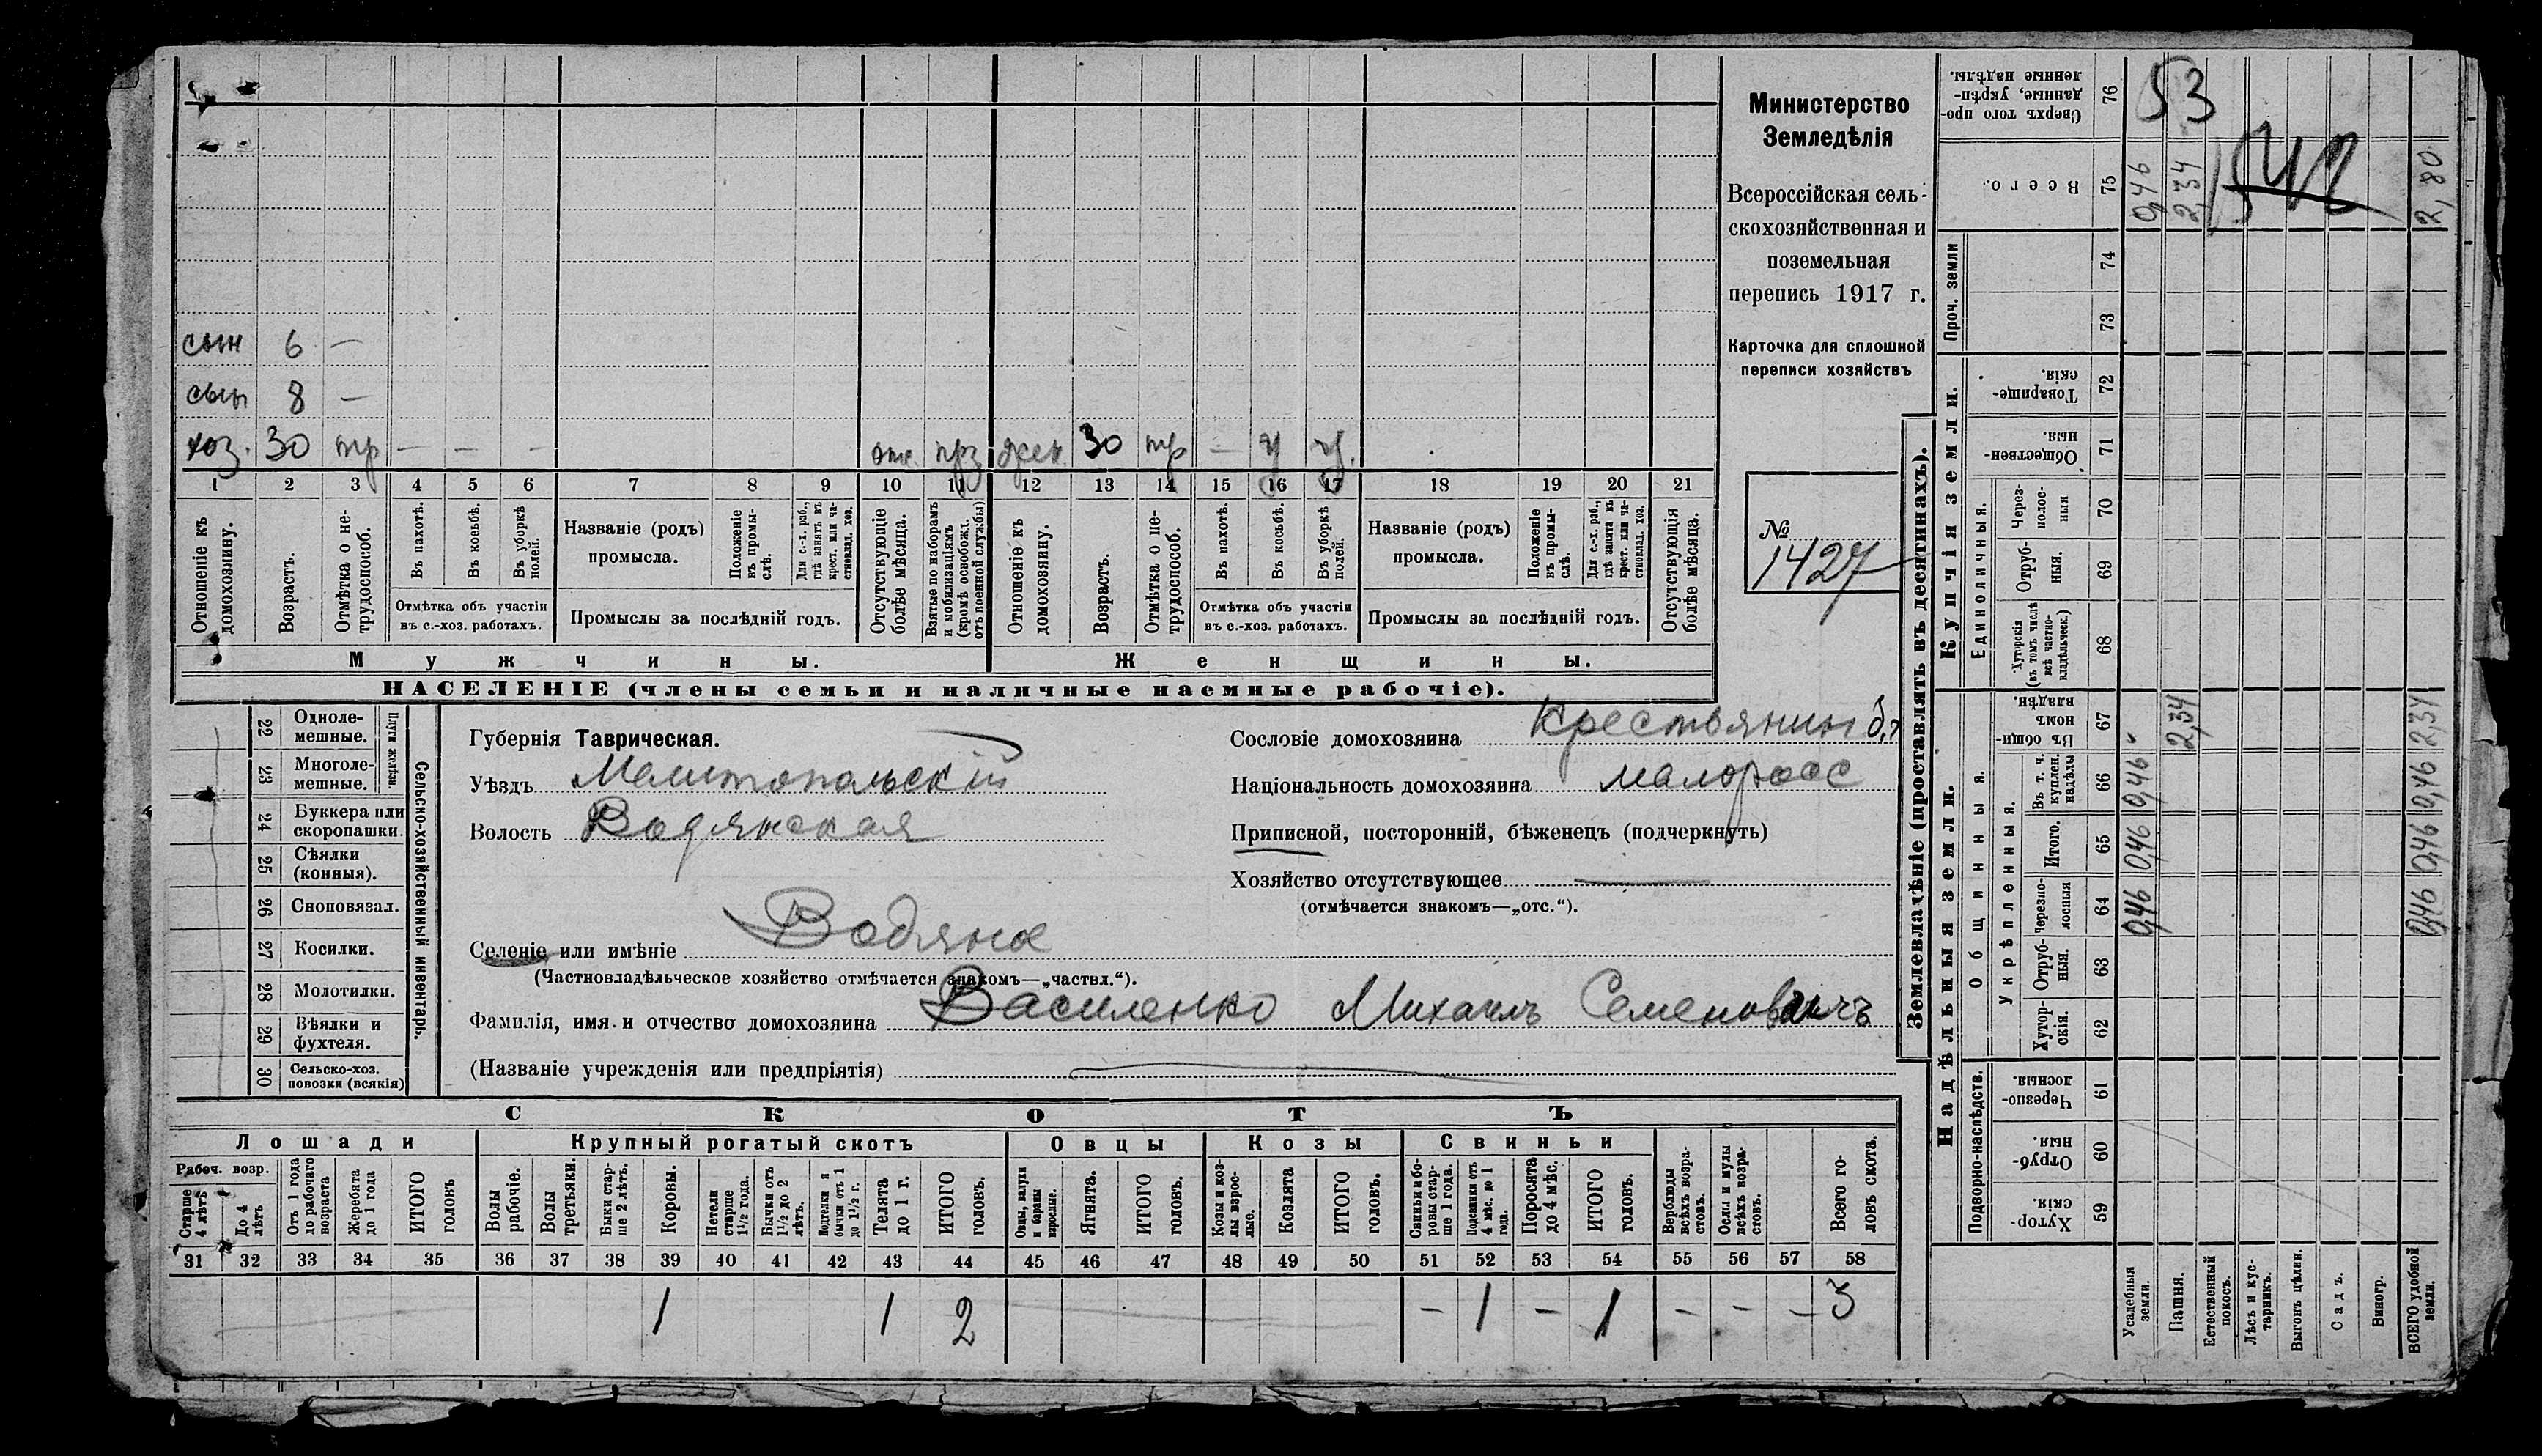 сын 6 —
сын 8 —
хоз. 30 тр — — — отс. прз жен. 30 тр — у у.
1 2 3 4 5 6 7 8 9 10 11 12 13 14 15 16 17 18 19 20 21
Отношеніе къ домохозяину.
Возрастъ.
Отмѣтка о не-трудоспособ.
Въ пахотѣ.
Въ косьбѣ.
Въ уборкѣ полей.
Отмѣтка объ участіи въ с.-хоз. работахъ.
Названіе (родъ) промысла.
Положеніе въ промы-слѣ.
Для с.-х. раб., гдѣ занятъ въ крест. или ча-стновлад. хоз.
Промыслы за послѣдній годъ.
Отсутствующіе болѣе мѣсяца.
Взятые по наборамъ и мобилизаціямъ (кромѣ освобожд. отъ военной службы)
Отношеніе къ домохозяину.
Возрастъ.
Отмѣтка о не-трудоспособ.
Въ пахотѣ.
Въ косьбѣ.
Въ уборкѣ полей.
Отмѣтка объ участіи въ с.-хоз. работахъ.
Названіе (родъ) промысла.
Положеніе въ промы-слѣ.
Для с.-х. раб., гдѣ занята въ крест. или ча-стновлад. хоз.
Промыслы за послѣдній годъ.
Отсутствующія болѣе мѣсяца.
Мужчины.
Женщины.
НАСЕЛЕНІЕ (члены семьи и наличные наемные рабочіе).
Министерство
Земледѣлія
Всероссійская сель-
скохозяйственная и
поземельная
перепись 1917 г.
Карточка для сплошной
переписи хозяйствъ
№
1427
22 Одноле-мешные.
23 Многоле-мешные.
Плуги желѣзн.
24 Буккера или скоропашки.
25 Сѣялки (конныя).
26 Сноповязал.
27 Косилки.
28 Молотилки.
29 Вѣялки и фухтеля.
30 Сельско-хоз. повозки (всякія)
Сельско-хозяйственный инвентарь.
Губернія Таврическая.
Уѣздъ Мелитопольскій
Волость Водянская
Селеніе или имѣніе Водяна
(Частновладѣльческое хозяйство отмѣчается знакомъ—„частвл.“).
Фамилія, имя и отчество домохозяина Василенко Михаилъ Семеновичъ
(Названіе учрежденія или предпріятія)
Сословіе домохозяина Крестьянин
Національность домохозяина малоросс
Приписной, посторонній, бѣженецъ (подчеркнуть)
Хозяйство отсутствующее —
(отмѣчается знакомъ—„отс.“).
СКОТЪ
Лошади
Крупный рогатый скотъ
Овцы
Козы
Свиньи
Рабоч. возр.
Старше 4 лѣтъ
До 4 лѣтъ
Отъ 1 года до рабочаго возраста
Жеребята до 1 года
ИТОГО головъ
Волы рабочіе.
Волы третьяки.
Быки стар-ше 2 лѣтъ.
Коровы.
Нетели старше 1½ года.
Бычки отъ 1½ до 2 лѣтъ.
Подтелки и бычки отъ 1 до 1½ г.
Телята до 1 г.
ИТОГО головъ.
Овцы, валухи и бараны взрослые.
Ягнята.
ИТОГО головъ.
Козы и коз-лы взрос-лые.
Козлята
ИТОГО головъ.
Свиньи и бо-ровы стар-ше 1 года.
Подсвинки отъ 4 мѣс. до 1 года.
Поросята до 4 мѣс.
ИТОГО головъ.
Верблюды всѣхъ возра-стовъ.
Ослы и мулы всѣхъ возра-стовъ.
Всего го-ловъ скота.
31 32 33 34 35 36 37 38 39 40 41 42 43 44 45 46 47 48 49 50 51 52 53 54 55 56 57 58
1 1 2 — 1 — 1 — — — 3
Землевладѣніе (проставлять въ десятинахъ).
Надѣльныя земли.
Купчія земли.
Проч. земли
Подворно-наслѣдств.
Общинныя.
Укрѣпленныя.
Единоличныя.
Хутор-скія. 59
Отруб-ныя. 60
Черезпо-лосныя. 61
Хутор-скія. 62
Отруб-ныя. 63
Черезпо-лосныя 64
Итого. 65
Въ т. ч. куплен. надѣлы 66
Въ общи-номъ владѣн. 67
Хуторскія (въ томъ числѣ всѣ частно-владѣльческ.) 68
Отруб-ныя. 69
Через-полос-ныя 70
Обществен-ныя. 71
Товарище-скія. 72
73
74
Всего. 75
Сверхъ того про-данные, укрѣп-ленные надѣлы. 76
Усадебныя земли. 0,46 0,46 0,46 „ 0,46
Пашня. 2,34 2,34
Естественный покосъ.
Лѣсъ и кус-тарникъ.
Выгонъ цѣлин.
Садъ.
Виногр.
ВСЕГО удобной земли. 0,46 0,46 0,46 2,34 2,80
53